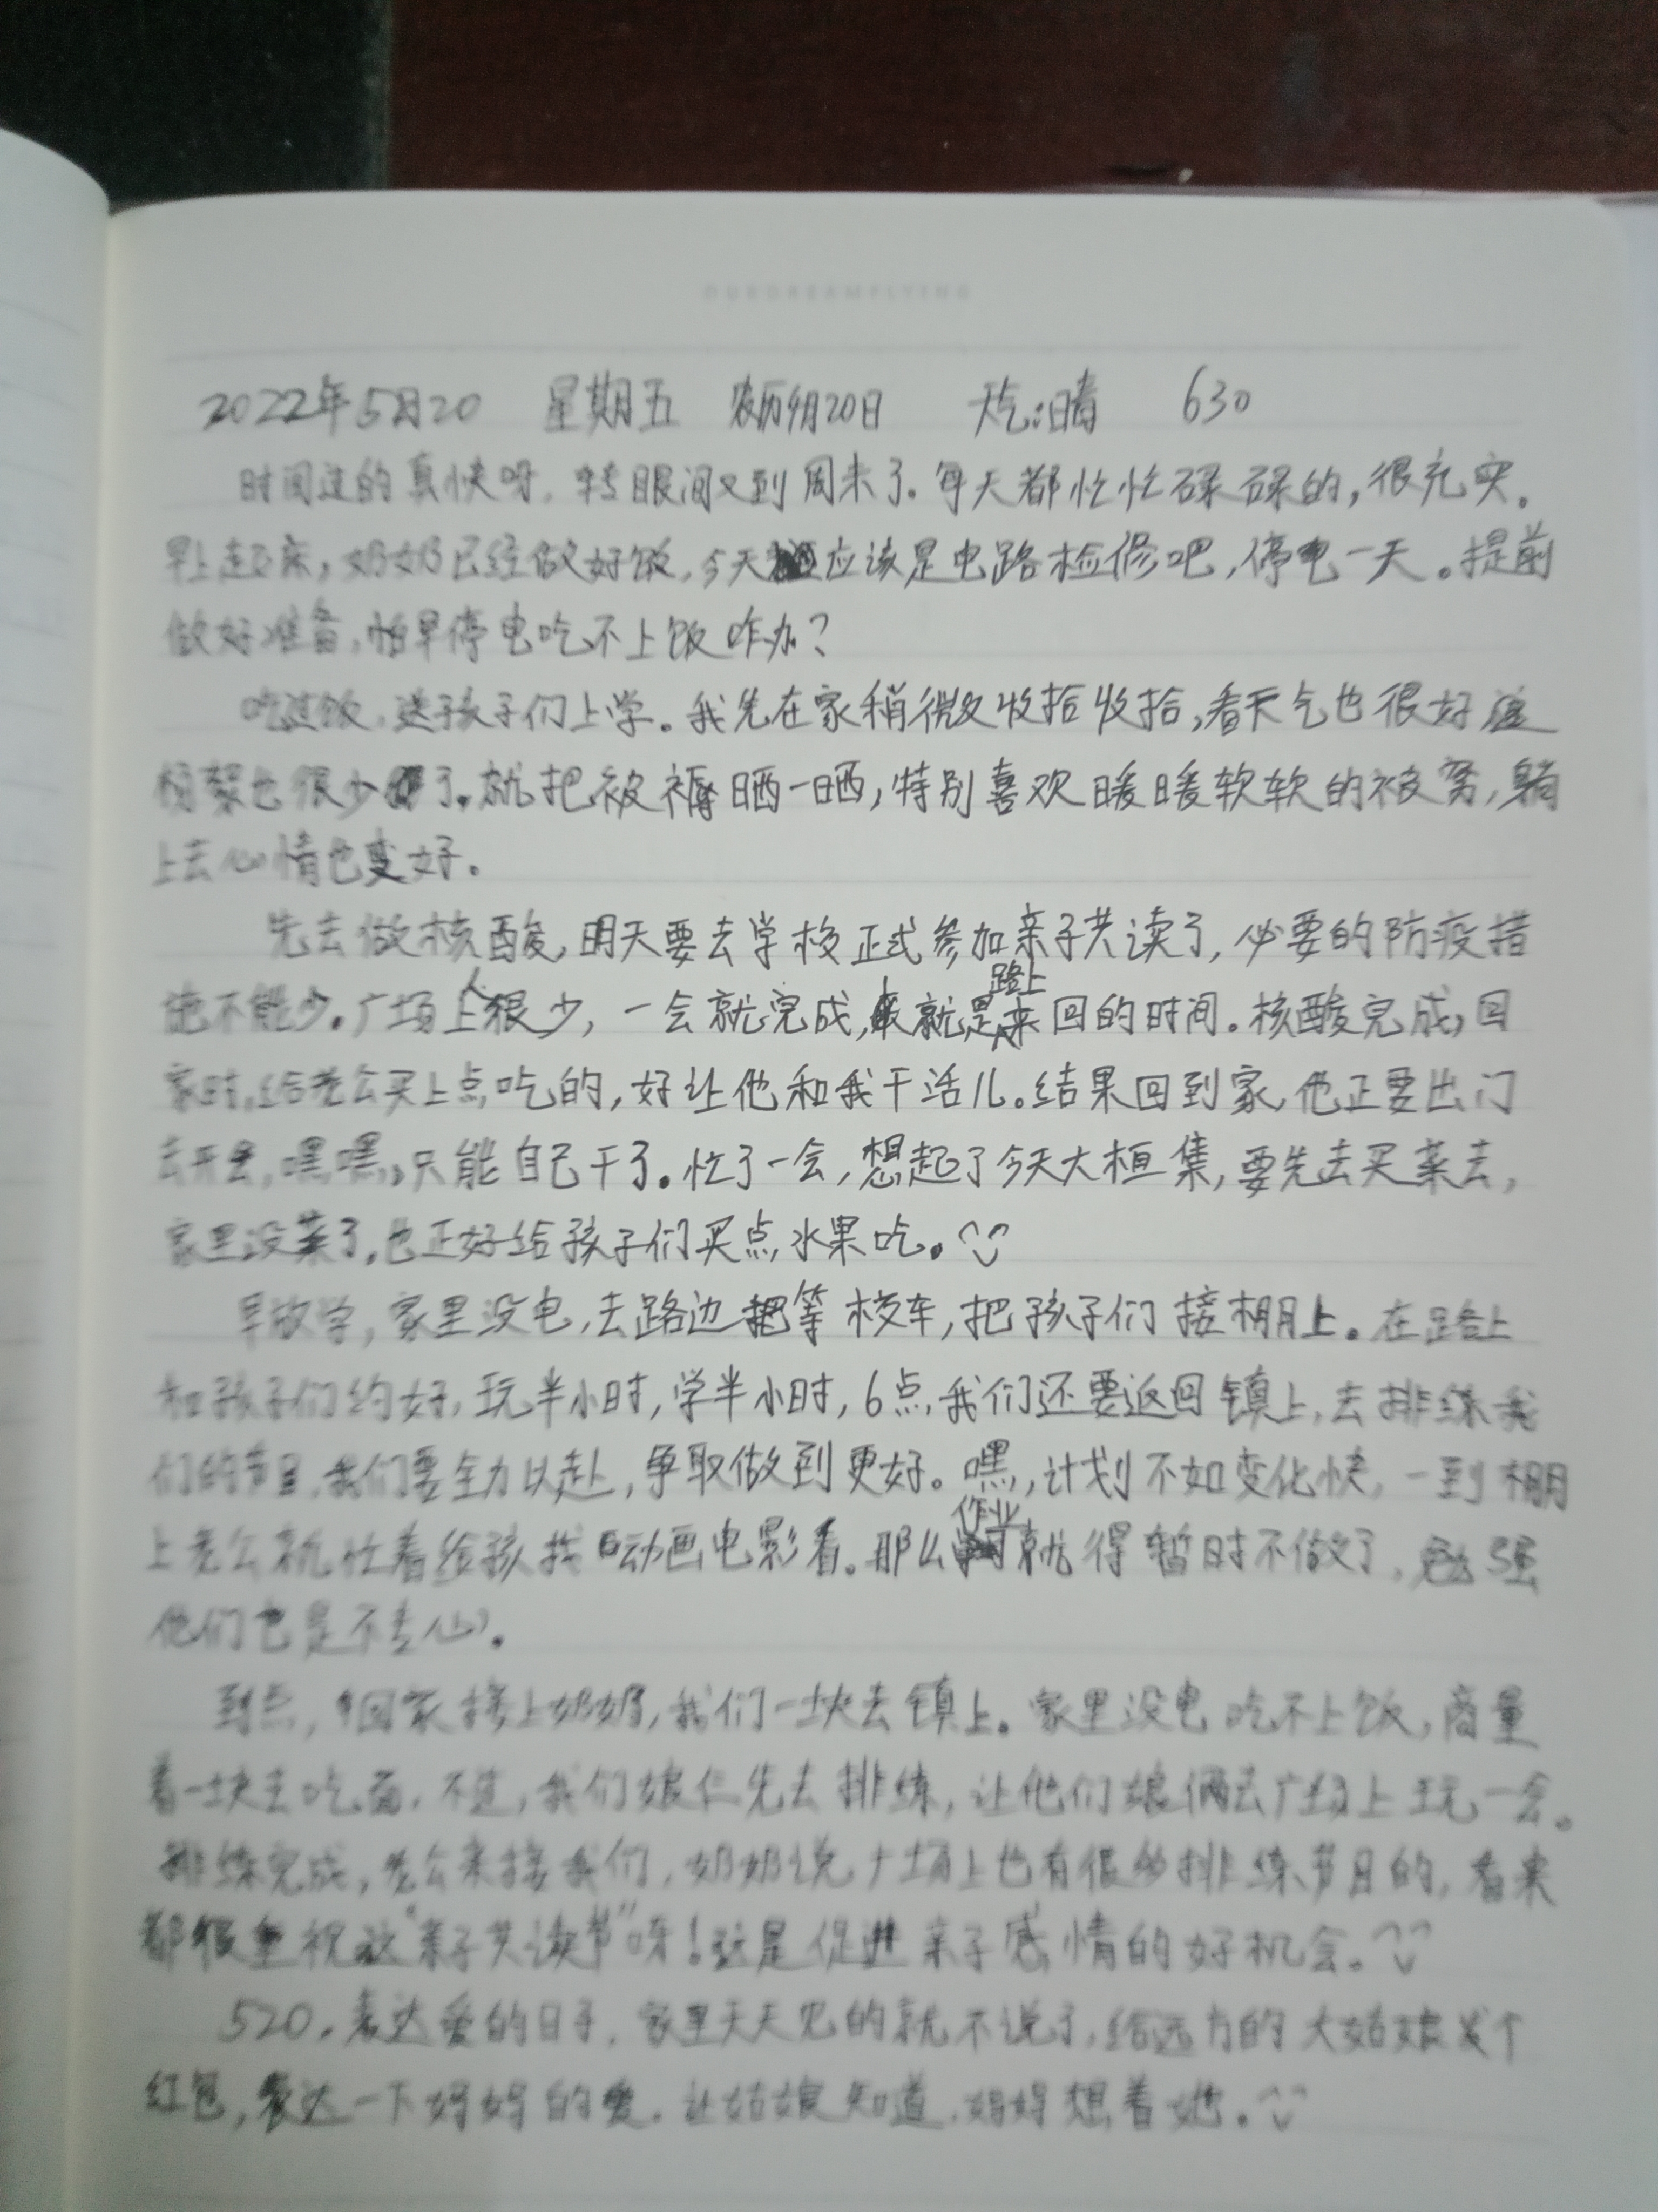 OURDREAMFLYING
2022年5月20 星期五 农历4月20日 天气:晴 630
时间过的真快呀,转眼间又到周末了。每天都忙忙碌碌的,很充实。
早上起来,奶奶已经做好饭,今天应该是电路检修吧,停电一天。提前
做好准备,怕早停电吃不上饭咋办?
吃过饭,送孩子们上学。我先在家稍微收拾收拾,看天气也很好这
杨絮也很少了。就把被褥晒一晒,特别喜欢暖暖软软的被窝,躺
上去心情也变好。
先去做核酸,明天要去学校正式参加亲子共读了,必要的防疫措
施不能少。广场上人很少,一会就完成,就是路上来回的时间。核酸完成,回
家时,给老公买上点吃的,好让他和我干活儿。结果回到家,他正要出门
去开会,嘿嘿,只能自己干了。忙了一会,想起了今天大桓集,要先去买菜去,
家里没菜了,也正好给孩子们买点水果吃。
早放学,家里没电,去路边等校车,把孩子们接棚上。在路上
和孩子们约好,玩半小时,学半小时,6点,我们还要返回镇上,去排练我
们的节目,我们要全力以赴,争取做到更好。嘿,计划不如变化快,一到棚
上老公就忙着给孩找动画电影看。那么作业就得暂时不做了,勉强
他们也是不专心。
到点,回家接上奶奶,我们一块去镇上。家里没电吃不上饭,商量
着一块去吃面,不过,我们娘仨先去排练,让他们娘俩去广场上玩一会。
排练完成,老公来接我们,奶奶说广场上也有很多排练节目的,看来
都很重视这“亲子共读节”呀!这是促进亲子感情的好机会。
520,表达爱的日子,家里天天见的就不说了,给远方的大姑娘发个
红包,表达一下妈妈的爱,让姑娘知道,妈妈想着她。